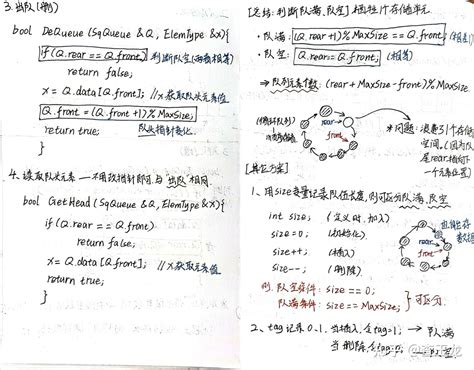 3. 出队(删)
bool DeQueue (SqQueue &Q, ElemType &x){
if(Q.rear == Q.front) 判断队空(两端相等)
return false;
x = Q.data[Q.front]; //x获取队头元素值
Q.front = (Q.front+1)%MaxSize;
return true; 队头指针变化
}
4. 读取队头元素——不用改指针即可, 与出队相同.
bool GetHead(SqQueue &Q, ElemType &x){
if(Q.rear == Q.front)
return false;
x = Q.data[Q.front]; //x获取元素值
return true;
}
[总结: 判断队满、队空] 牺牲1个存储单元
· 队满: (Q.rear+1)%MaxSize == Q.front;
· 队空: Q.rear = Q.front; (相等)
⇒ 队列元素个数: (rear+MaxSize-front)%MaxSize
(循环队列)
rear
front
* 问题: 浪费了1个存储
空间. (因为队
尾rear指向下
一个元素位置)
[其它方案]
1、用size变量记录队伍长度, 则可区分队满、队空
int size; (定义时, 加入)
size=0; (初始化)
size++; (插入)
size--; (删除)
rear
front
则. 队空条件: size == 0;
队满条件: size == MaxSize; 可区分.
2、tag记录0-1. 当插入, 令tag=1; → 队满
当删除, 令tag=0; → 队空
知乎